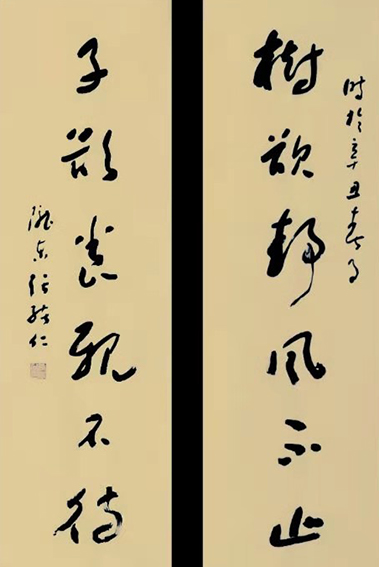 時於辛丑春月
樹欲靜風不止
子欲養親不待
隴东仁